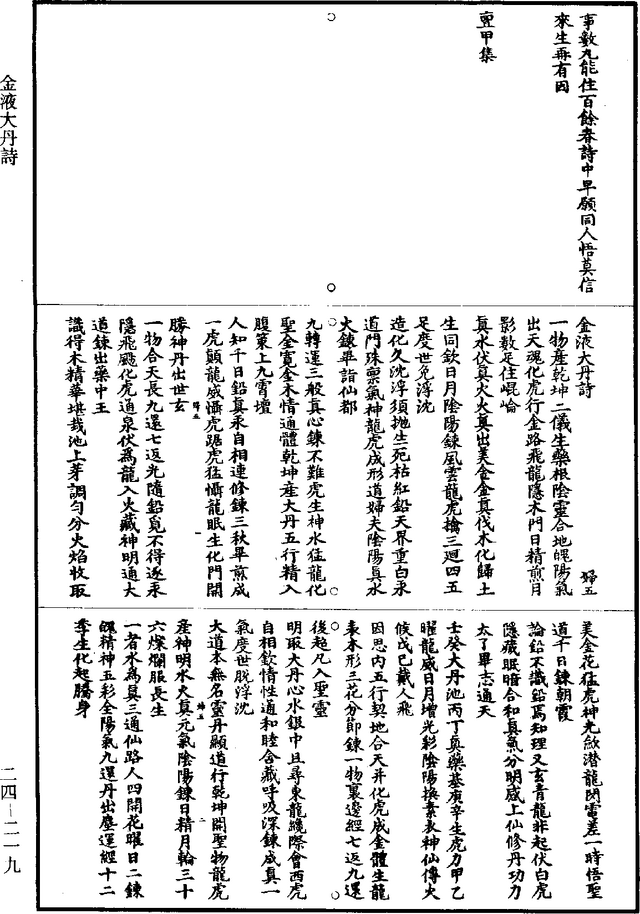 事數九能住百餘春詩中早願同人悟莫信
來生再有因
亶甲集
金液大丹詩
金液大丹詩 婦五
一物產乾坤二儀生藥根陰靈合地魄陽氣
出天魂化虎行金路飛龍隱木門日精煎月
影數足住崐崘
真水伏真火火真出美金金真伐木化歸土
生同欽日月陰陽鍊風雲龍虎擒三廻四五
足度世免浮沈
造化久沈浮須拋生死枯紅鉛天界重白汞
道門殊禀氣神龍虎成形道婦夫陰陽真水
火鍊畢詣仙都
九轉運三般真心鍊不難虎生神水猛龍化
聖金寬金木情通體乾坤產大丹五行精入
腹策上九霄壇
人知千日鉛真汞自相連修鍊三秋畢煎成
一虎顛龍威懾虎踞虎猛懾龍眠生化門開
勝神丹出世玄
一物合天長九還七返光隨鉛覓不得逐汞
隱飛颺化虎通泉伏為龍入火藏神明通大
道鍊出藥中王
識得木精華堪哉池上芽調勻分火焰收取
美金花猛虎神光斂潛龍閃電差一時悟聖
道千日鍊朝霞
論鉛不識鉛焉知理又玄青龍非起伏白虎
隱藏眠暗合和真氣分明感上仙修丹功力
太了畢志通天
壬癸大丹池丙丁真藥基庚辛生虎力甲乙
曜龍威日月增光彩陰陽換素衣神仙傳火
候戊己戴人飛
因思內五行契地合天并化虎成金體生龍
表本形三花分節鍊一物裏邊經七返九還
後超凡入聖靈
明取大丹心水銀中且尋東龍纔際會西虎
自相欽情性通和睦含藏呼吸深鍊成真一
氣度世脫浮沈
大道本無名靈丹顯道行乾坤開聖物龍虎
產神明水火真元氣陰陽鍊日精月輪三十
六燦爛服長生
一者水為真三通仙路人四開花曜日二鍊
魄精神五彩全陽氣九還丹出塵運經十二
季生化起騰身
二四—二一九